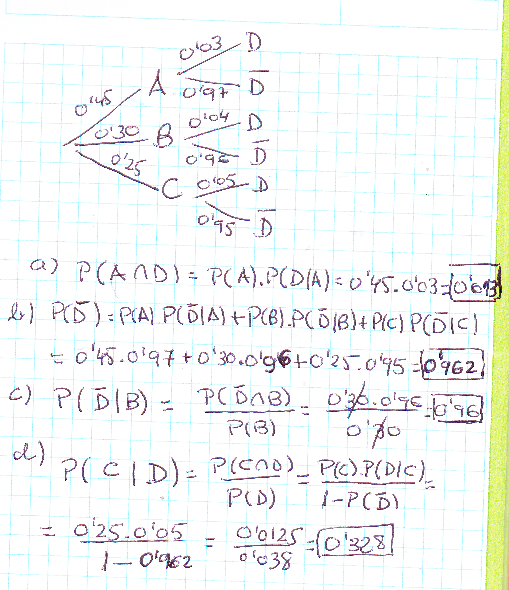 0'03 D
A
0'45 0'97 D̅
0'30 B 0'04 D
0'25 0'96 D̅
C 0'05 D
0'95 D̅
a) P(A∩D) = P(A).P(D/A) = 0'45.0'03 = 0'013
b) P(D̅) = P(A) P(D̅/A) + P(B).P(D̅/B) + P(C) P(D̅/C)
= 0'45.0'97 + 0'30.0'96 + 0'25.0'95 = 0'962
c) P(D̅/B) = P(D̅∩B) / P(B) = 0'30.0'96 / 0'30 = 0'96
d) P(C/D) = P(C∩D) / P(D) = P(C).P(D/C) / 1-P(D̅) =
= 0'25.0'05 / 1-0'962 = 0'0125 / 0'038 = 0'328